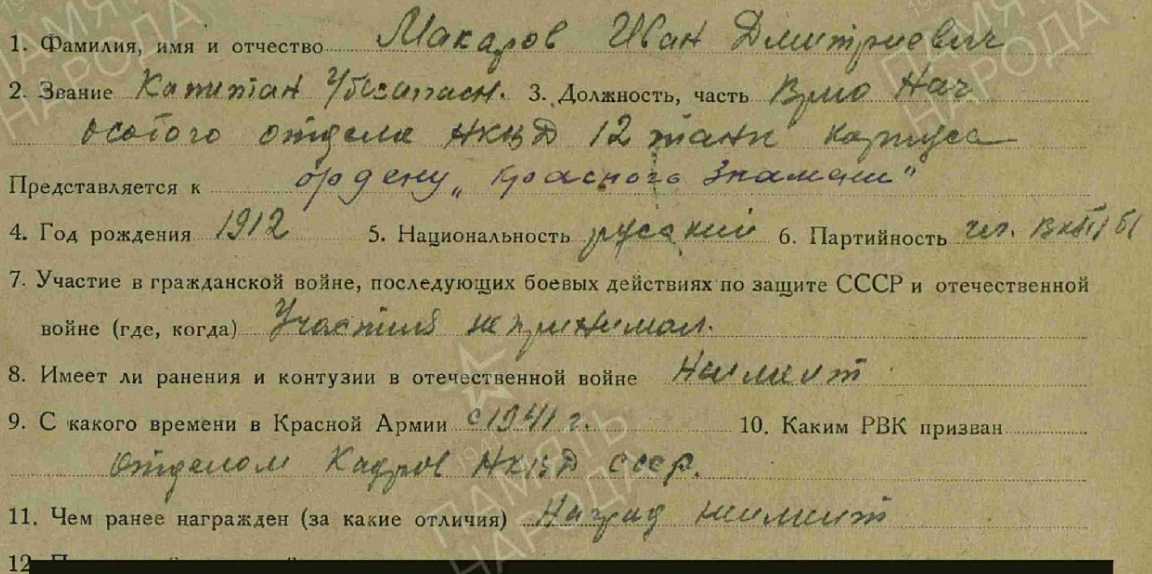 1. Фамилия, имя и отчество Макаров Иван Дмитриевич
2. Звание Капитан Гбезопасн. 3. Должность, часть Врио Нач
особого отдела НКВД 12 танк корпуса
Представляется к ордену „Красного Знамени"
4. Год рождения 1912 5. Национальность русский 6. Партийность чл. ВКП/б/
7. Участие в гражданской войне, последующих боевых действиях по защите СССР и отечественной
войне (где, когда) Участия не принимал.
8. Имеет ли ранения и контузии в отечественной войне Не имеет
9. С какого времени в Красной Армии с 1941 г. 10. Каким РВК призван
Отделом Кадров НКВД СССР.
11. Чем ранее награжден (за какие отличия) Наград не имеет
12
ПАМЯТЬ НАРОДА
ПАМЯТЬ НАРОДА
ПАМЯТЬ НАРОДА